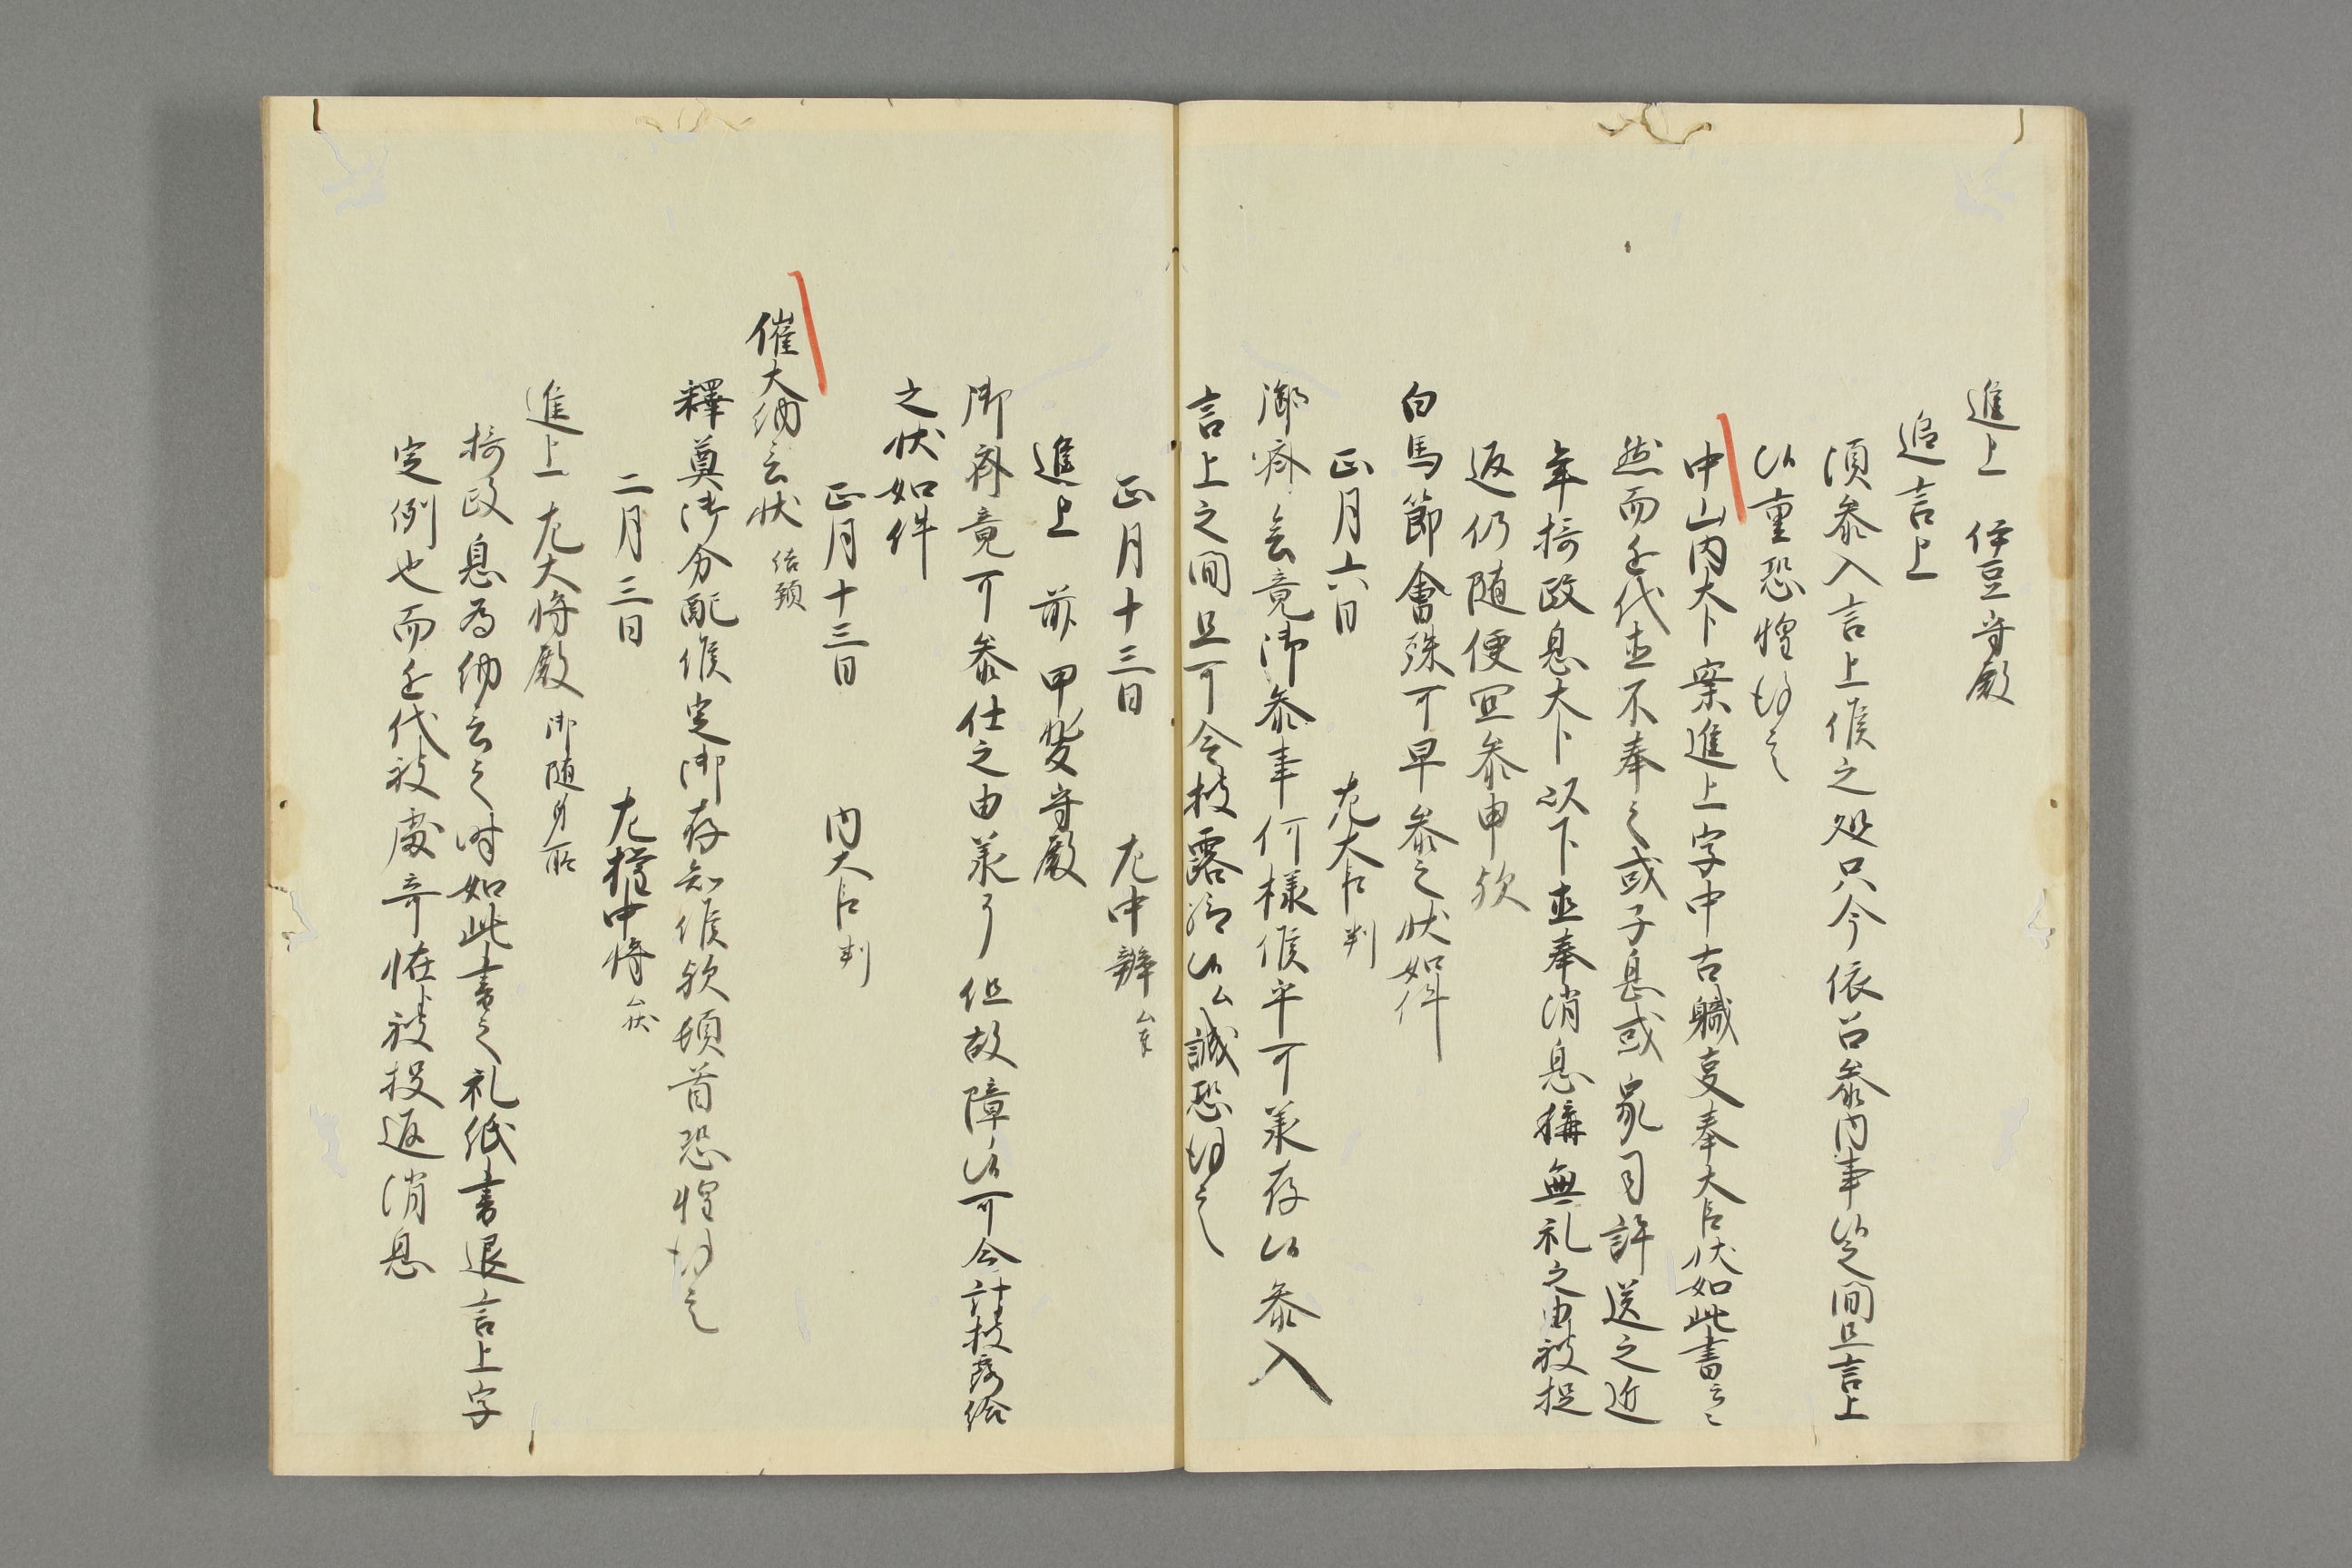 進上 伊豆守殿
追言上
須參入言上候之処只今依召參內事候之間且言上
候重恐惶謹言
中山內大卜案進上字中古職事奉大臣状如此書云々
然而近代並不奉之或子息或家司許送之近
年摂政息大卜以下並奉消息構無礼之由被投
返仍随便宜參申欤
白馬節會殊可早參之状如件
正月六日 左大臣判
御斎会竟御參事何樣候乎可承存候參入
言上之間且可令披露給候誠恐謹言
正月十三日 左中辨
進上 前甲斐守殿
御斎竟可參仕之由承了但故障候可令計披露給
之状如件
正月十三日 內大臣判
催大納言状
釋奠御分配候定御存知候欤頓首恐惶謹言
二月三日 左權中将
進上 左大将殿 御随身所
摂政息為納言之時如此書之礼紙書退言上字
定例也而近代被處奇恠被投返消息